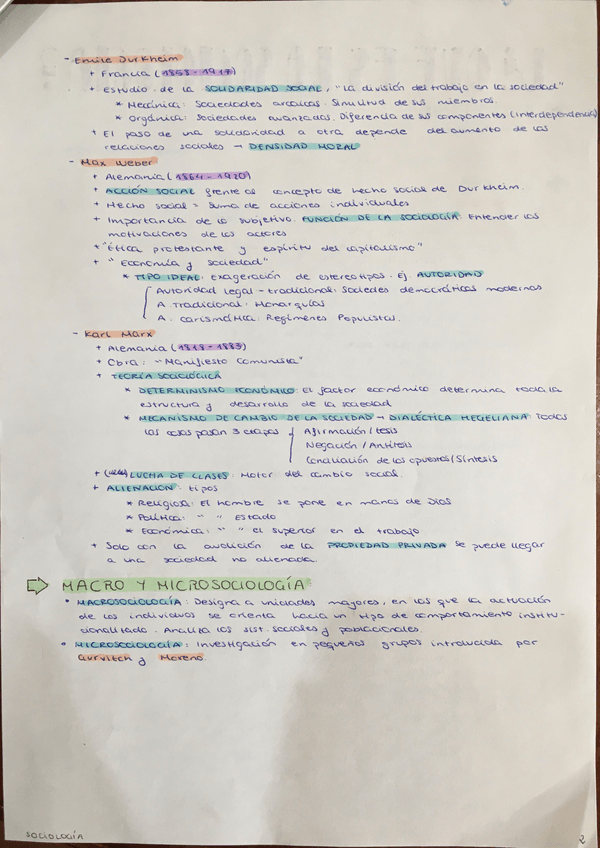 - Emile Durkheim
+ Francia (1858-1917)
+ Estudio de la SOLIDARIDAD SOCIAL, "La división del trabajo en la sociedad"
* Mecánica: Sociedades arcaicas. Similitud de sus miembros.
* Orgánica: Sociedades avanzadas. Diferencia de sus componentes (interdependencia)
+ El paso de una solidaridad a otra depende del aumento de las
relaciones sociales → DENSIDAD MORAL
- Max Weber
+ Alemania (1864-1920)
+ ACCIÓN SOCIAL frente al concepto de hecho social de Durkheim.
+ Hecho social = Suma de acciones individuales
+ Importancia de lo subjetivo. FUNCIÓN DE LA SOCIOLOGÍA: Entender las
motivaciones de los actores
+ "Ética protestante y espíritu del capitalismo"
+ "Economía y sociedad"
* TIPO IDEAL: exageración de estereotipos. Ej: AUTORIDAD
Autoridad legal-tradicional: Sociedes democráticas modernas
A. Tradicional: Monarquías
A. Carismática: Regímenes Populistas.
- Karl Marx
+ Alemania (1818-1883)
+ Obra: "Manifiesto Comunista"
+ TEORÍA SOCIOLÓGICA
* DETERMINISMO ECONÓMICO: El factor económico determina toda la
estructura y desarrollo de la sociedad
* MECANISMO DE CAMBIO DE LA SOCIEDAD → DIALÉCTICA HEGELIANA: Todas
las cosas pasan 3 etapas
Afirmación/tesis
Negación/Antítesis
Conciliación de los opuestos/Síntesis
+ LUCHA DE CLASES: Motor del cambio social.
+ ALIENACIÓN: tipos
* Religiosa: El hombre se pone en manos de Dios
* Política: " " Estado
* Económica: " " el superior en el trabajo
+ Solo con la abolición de la PROPIEDAD PRIVADA se puede llegar
a una sociedad no alienada.
⇨ MACRO Y MICROSOCIOLOGÍA
• MACROSOCIOLOGÍA: Designa a unidades mayores, en las que la actuación
de los individuos se orienta hacia un tipo de comportamiento institu-
cionalizado. Analiza los sist. sociales y poblacionales.
• MICROSOCIOLOGÍA: Investigación en pequeños grupos introducida por
Gurvitch y Moreno.
SOCIOLOGÍA
2